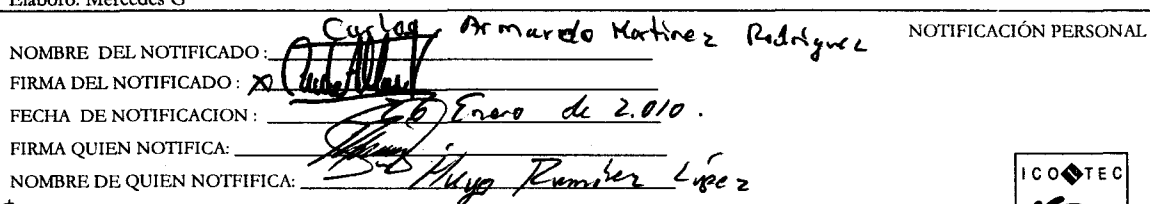 Elaboró: Mercedes G
NOTIFICACIÓN PERSONAL
NOMBRE DEL NOTIFICADO : Carlos Armando Martinez Rodriguez
FIRMA DEL NOTIFICADO : X
FECHA DE NOTIFICACION : 26 Enero de 2.010.
FIRMA QUIEN NOTIFICA:
NOMBRE DE QUIEN NOTFIFICA: Hugo Ramirez López
ICONTEC